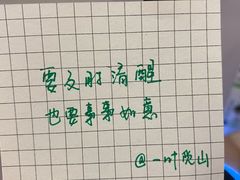 要及时清醒
也要事事如意
@一叶晚山